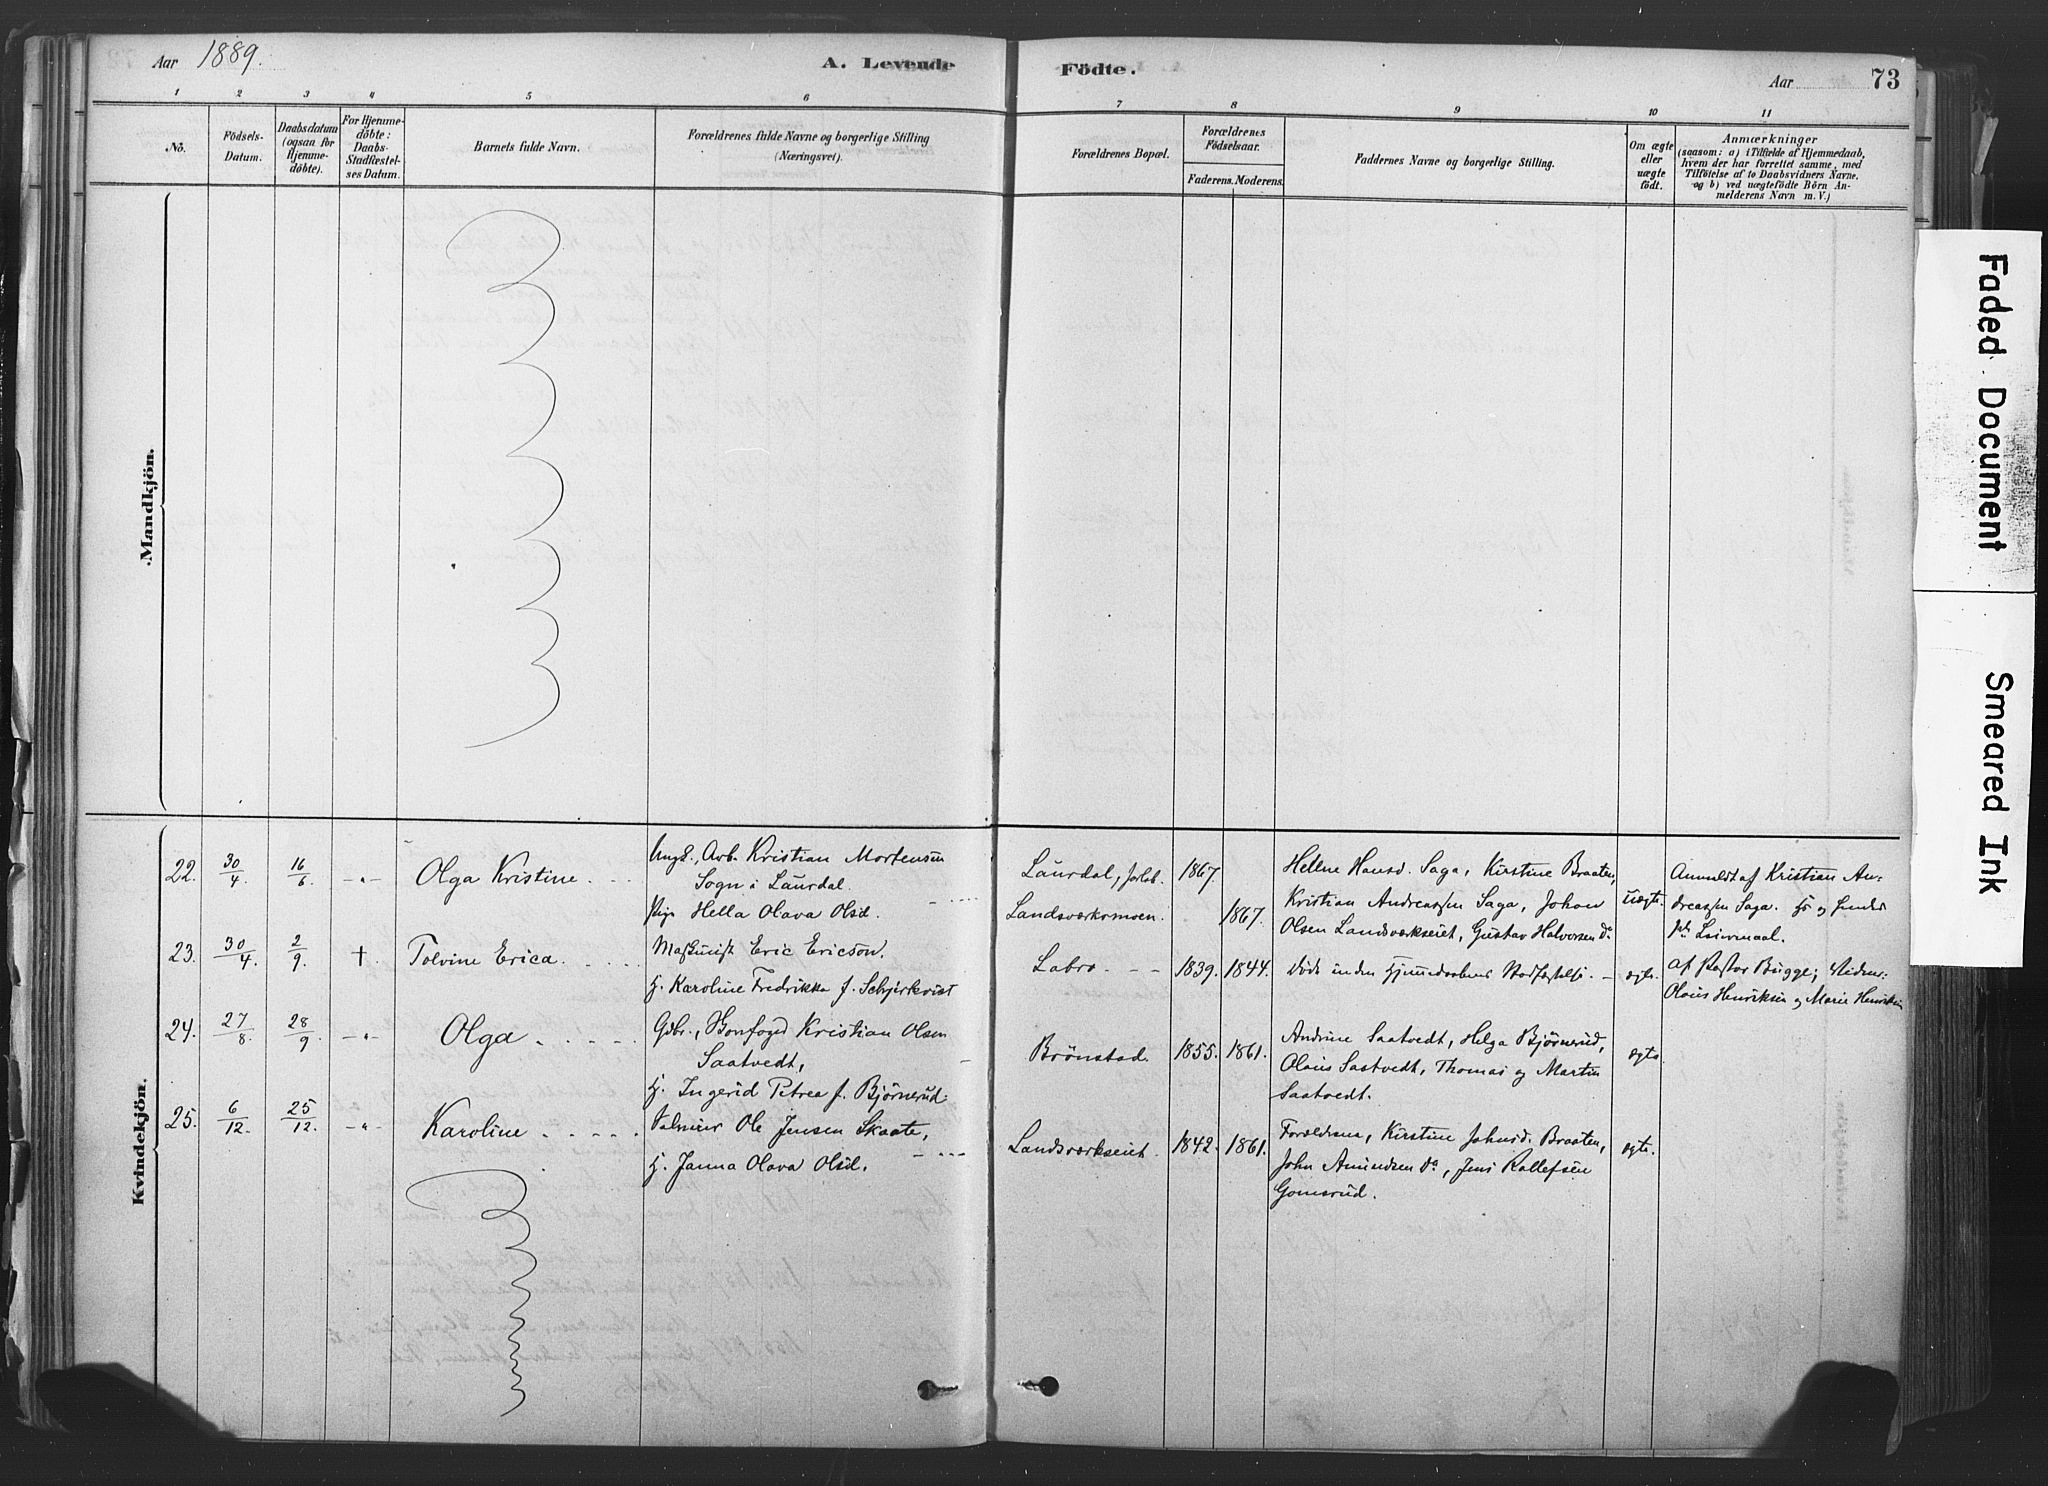 Aar 1889.
A. Levende
Födte.
Aar
73
1
2
3
4
5
6
7
8
9
10
11
No.
Födsels-
Datum.
Daabsdatum
(ogsaa for
Hjemme-
döbte).
For Hjemme-
döbte:
Daabs-
Stadfæstel-
ses Datum.
Barnets fulde Navn.
Forældrenes fulde Navne og borgerlige Stilling
(Næringsvei).
Forældrenes Bopæl.
Forældrenes
Födselsaar.
Faderens.
Moderens.
Faddernes Navne og borgerlige Stilling.
Om ægte
eller
uægte
födt.
Anmærkninger
(saasom: a) i Tilfælde af Hjemmedaab,
hvem der har forrettet samme, med
Tilföielse af to Daabsvidners Navne,
og b) ved uægtefödte Börn An-
melderens Navn m. V.)
Mandkjön.
Kvindekjön.
22. 30/4 16/6. -"- Olga Kristine
Ungk., Arb. Kristian Mortensen
Sogn i Laurdal.
Pige Hella Olava Olsd.
Laurdal, Jarlsb.
Landsværksmoen.
1867.
1867.
Hellene Hansd. Saga, Kirstine Braaten,
Kristian Andreassen Saga, Johan
Olsen Landsværkseiet, Gustav Halvorsen do
uægte.
Anmeldt af Kristian An-
dreassen Saga.
23. 30/4. 2/9. † Tolvine Erica.
Maskinist Eric Ericson.
H. Karoline Fredrikka f. Schjirkvist
Labro
1839. 1844.
Døde inden Hjemmedaabens Stadfæstelse
ægte.
af Pastor Bugge; Vidner:
Olaus Henriksen og Marie Henriksen
24. 27/8. 28/9 -"- Olga
Gdbr., Skovfoged Kristian Olsen
Saatvedt,
H. Ingerid Petrea f. Bjørnerud.
Brønstad.
1855. 1861.
Andrine Saatvedt, Helga Bjørnerud,
Olaus Saatvedt, Thomas og Martin
Saatvedt.
ægte.
25. 6/12. 25/12. -"- Karoline
Ole Jensen Skaate,
H. Janna Olava Olsd.
Landsværkseiet.
1842. 1861.
Forældrene, Kirstine Johnsd. Braaten,
John Amundsen do, Jens Rollefsen
Gomsrud.
ægte.
Faded Document
Smeared Ink